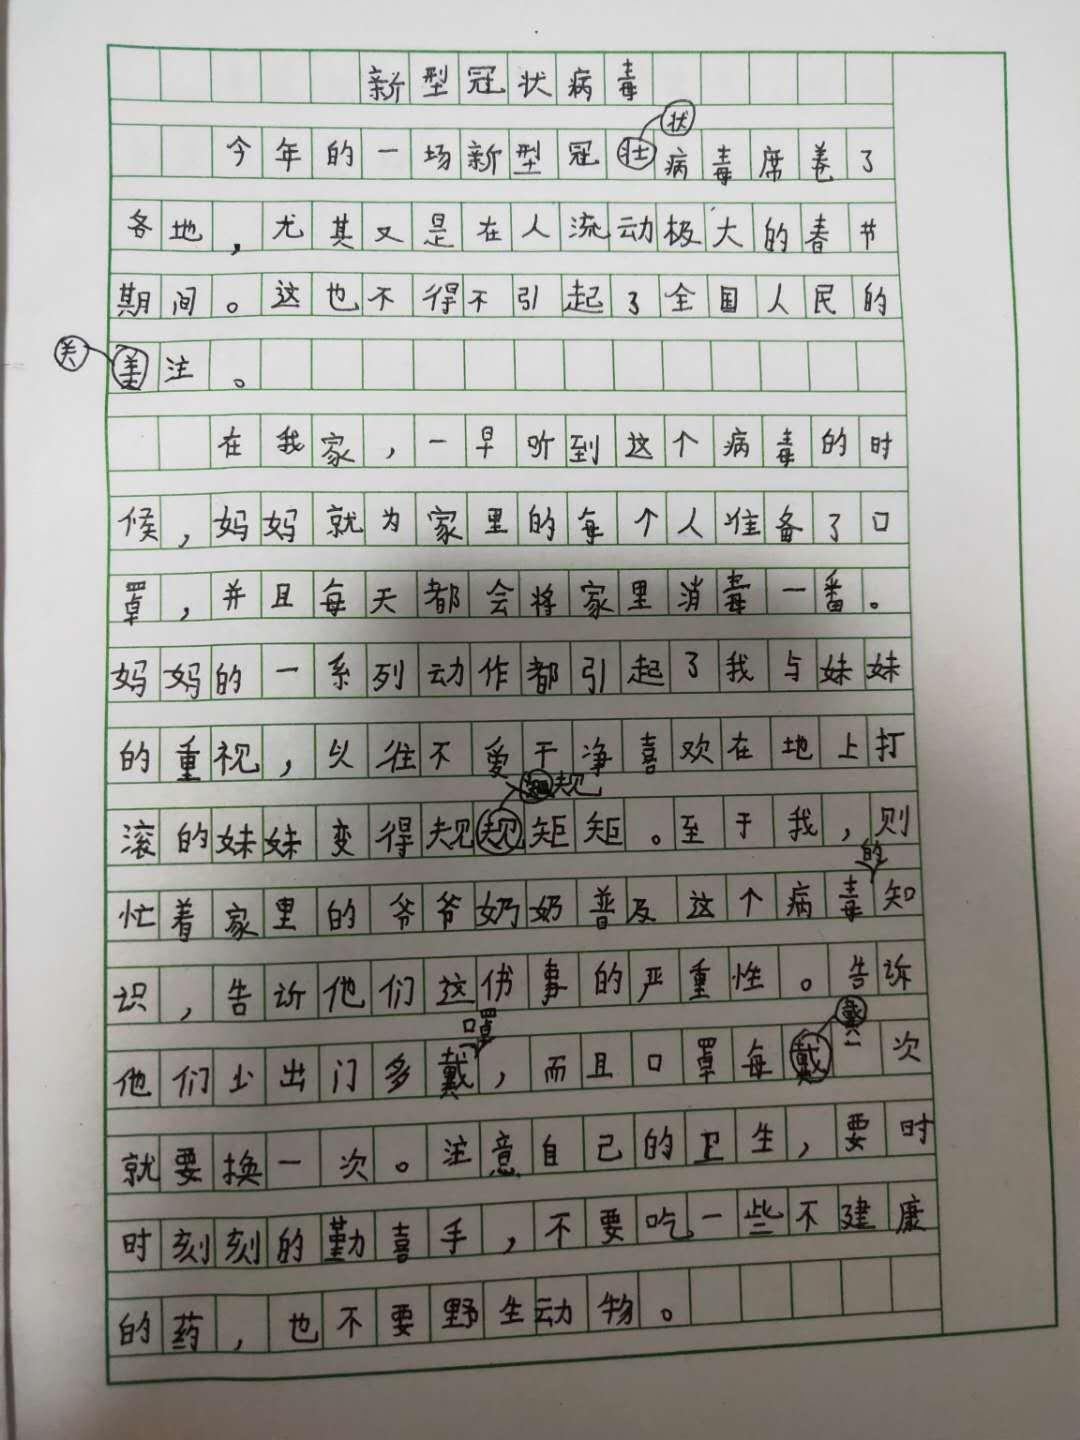 新型冠状病毒
状
今年的一场新型冠壮病毒席卷了
各地，尤其又是在人流动极大的春节
期间。这也不得不引起了全国人民的
关
注。
在我家，一早听到这个病毒的时
候，妈妈就为家里的每个人准备了口
罩，并且每天都会将家里消毒一番。
妈妈的一系列动作都引起了我与妹妹
的重视，以往不爱干净喜欢在地上打
规
滚的妹妹变得规规矩矩。至于我，则
的
忙着家里的爷爷奶奶普及这个病毒知
识，告诉他们这件事的严重性。告诉
口罩
戴
他们少出门多戴，而且口罩每戴一次
就要换一次。注意自己的卫生，要时
时刻刻的勤喜手，不要吃一些不建康
的药，也不要野生动物。